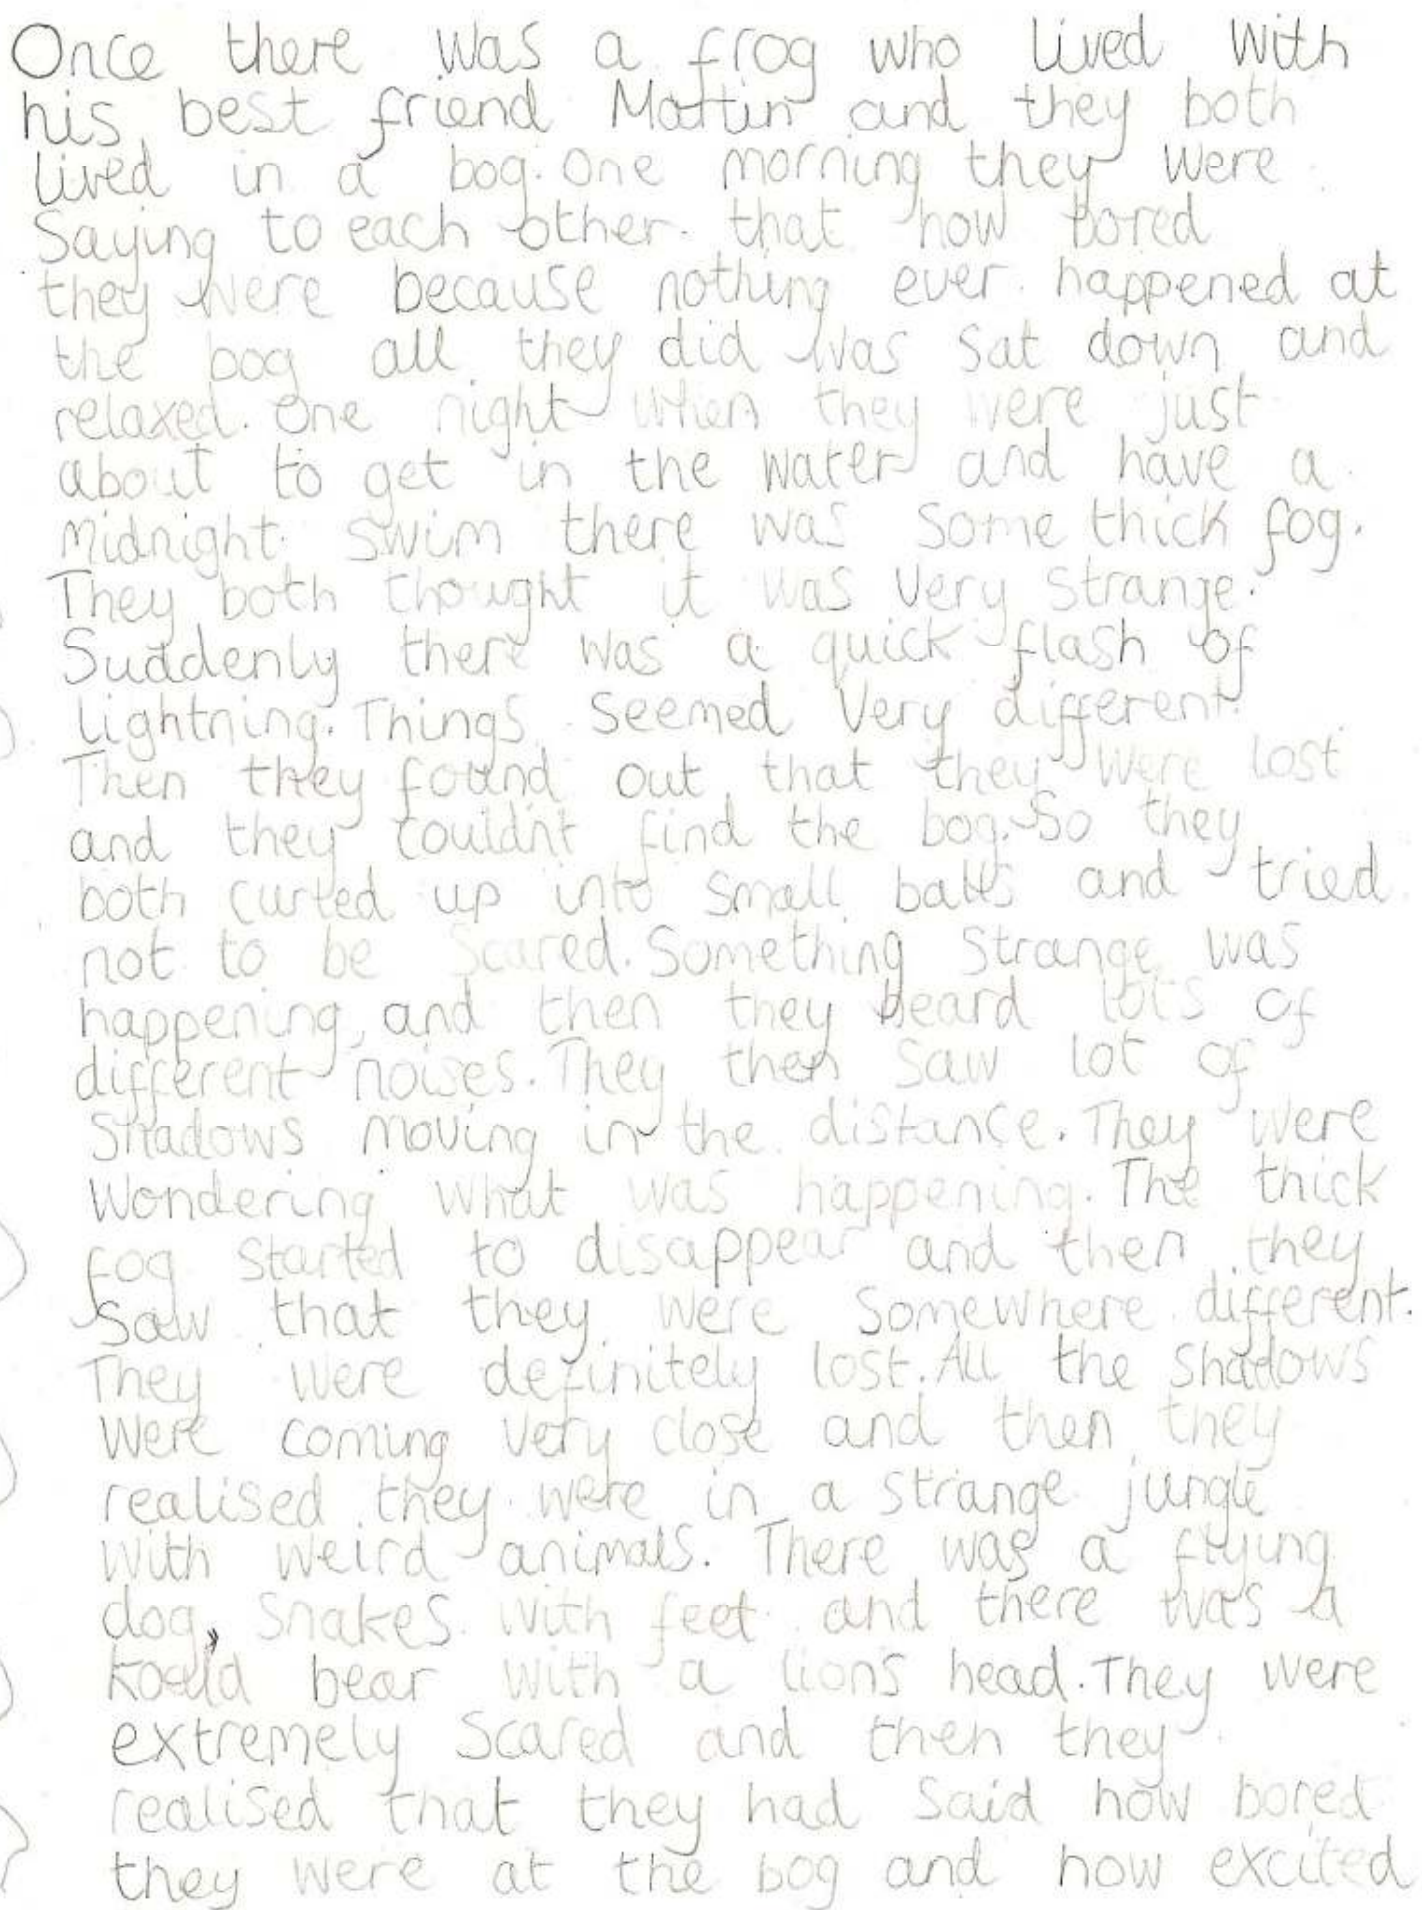 Once there was a frog who lived with
his best friend Martin and they both
lived in a bog. One morning they were
Saying to each other. that how bored
they were because nothing ever happened at
the bog all they did was sat down and
relaxed. One night when they were just
about to get in the water and have a
midnight swim there was some thick fog.
They both thought it was very strange.
Suddenly there was a quick flash of
lightning. Things seemed very different.
Then they found out that they were lost
and they couldn't find the bog. So they
both curled up into small balls and tried
not to be scared. Something strange was
happening, and then they heard lots of
different noises. They then saw lot of
shadows moving in the distance. They were
wondering what was happening. The thick
fog started to disappear and then they
saw that they were somewhere different.
They were definitely lost. All the shadows
were coming very close and then they
realised they were in a strange jungle
with weird animals. There was a flying
dog, snakes with feet and there was a
koala bear with a lions head. They were
extremely scared and then they
realised that they had said how bored
they were at the bog and how excited